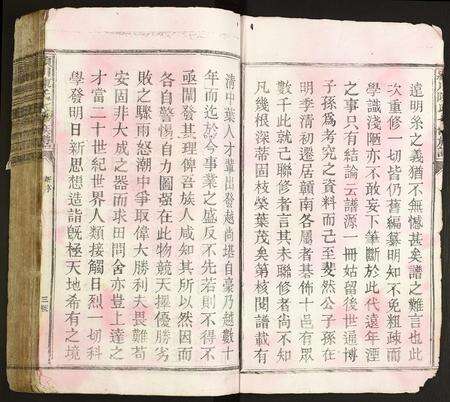 遠明系之義猶不無憾甚矣譜之難言也此
次重修一切皆仍舊編纂明知不免粗疎而
學識淺陋亦不敢妄下筆斷於此代遠年湮
之事只有結論云譜源一冊姑留後世通博
子孫為考究之資料而己至斐然公子孫在
明季清初遷居贛南各屬者基佈十邑有眾
數千此就己聯修者言其未聯修者尚不知
凡幾根深蒂固枝榮葉茂矣第核閱譜載有
清中葉人才輩出發越尚堪自豪乃越數十
年而迄於今事業之盛反不先若則不得不
亟闡發其理俾吾族人咸知其所以然因而
各自警惕自力圖强在此物競天擇優勝劣
敗之驟雨怒潮中爭取偉大勝利夫畏難苟
安固非大成之器而求田問舍亦豈上達之
才當二十世紀世界人類接觸日烈一切科
學發明日新思想造詣旣極天地希有之境